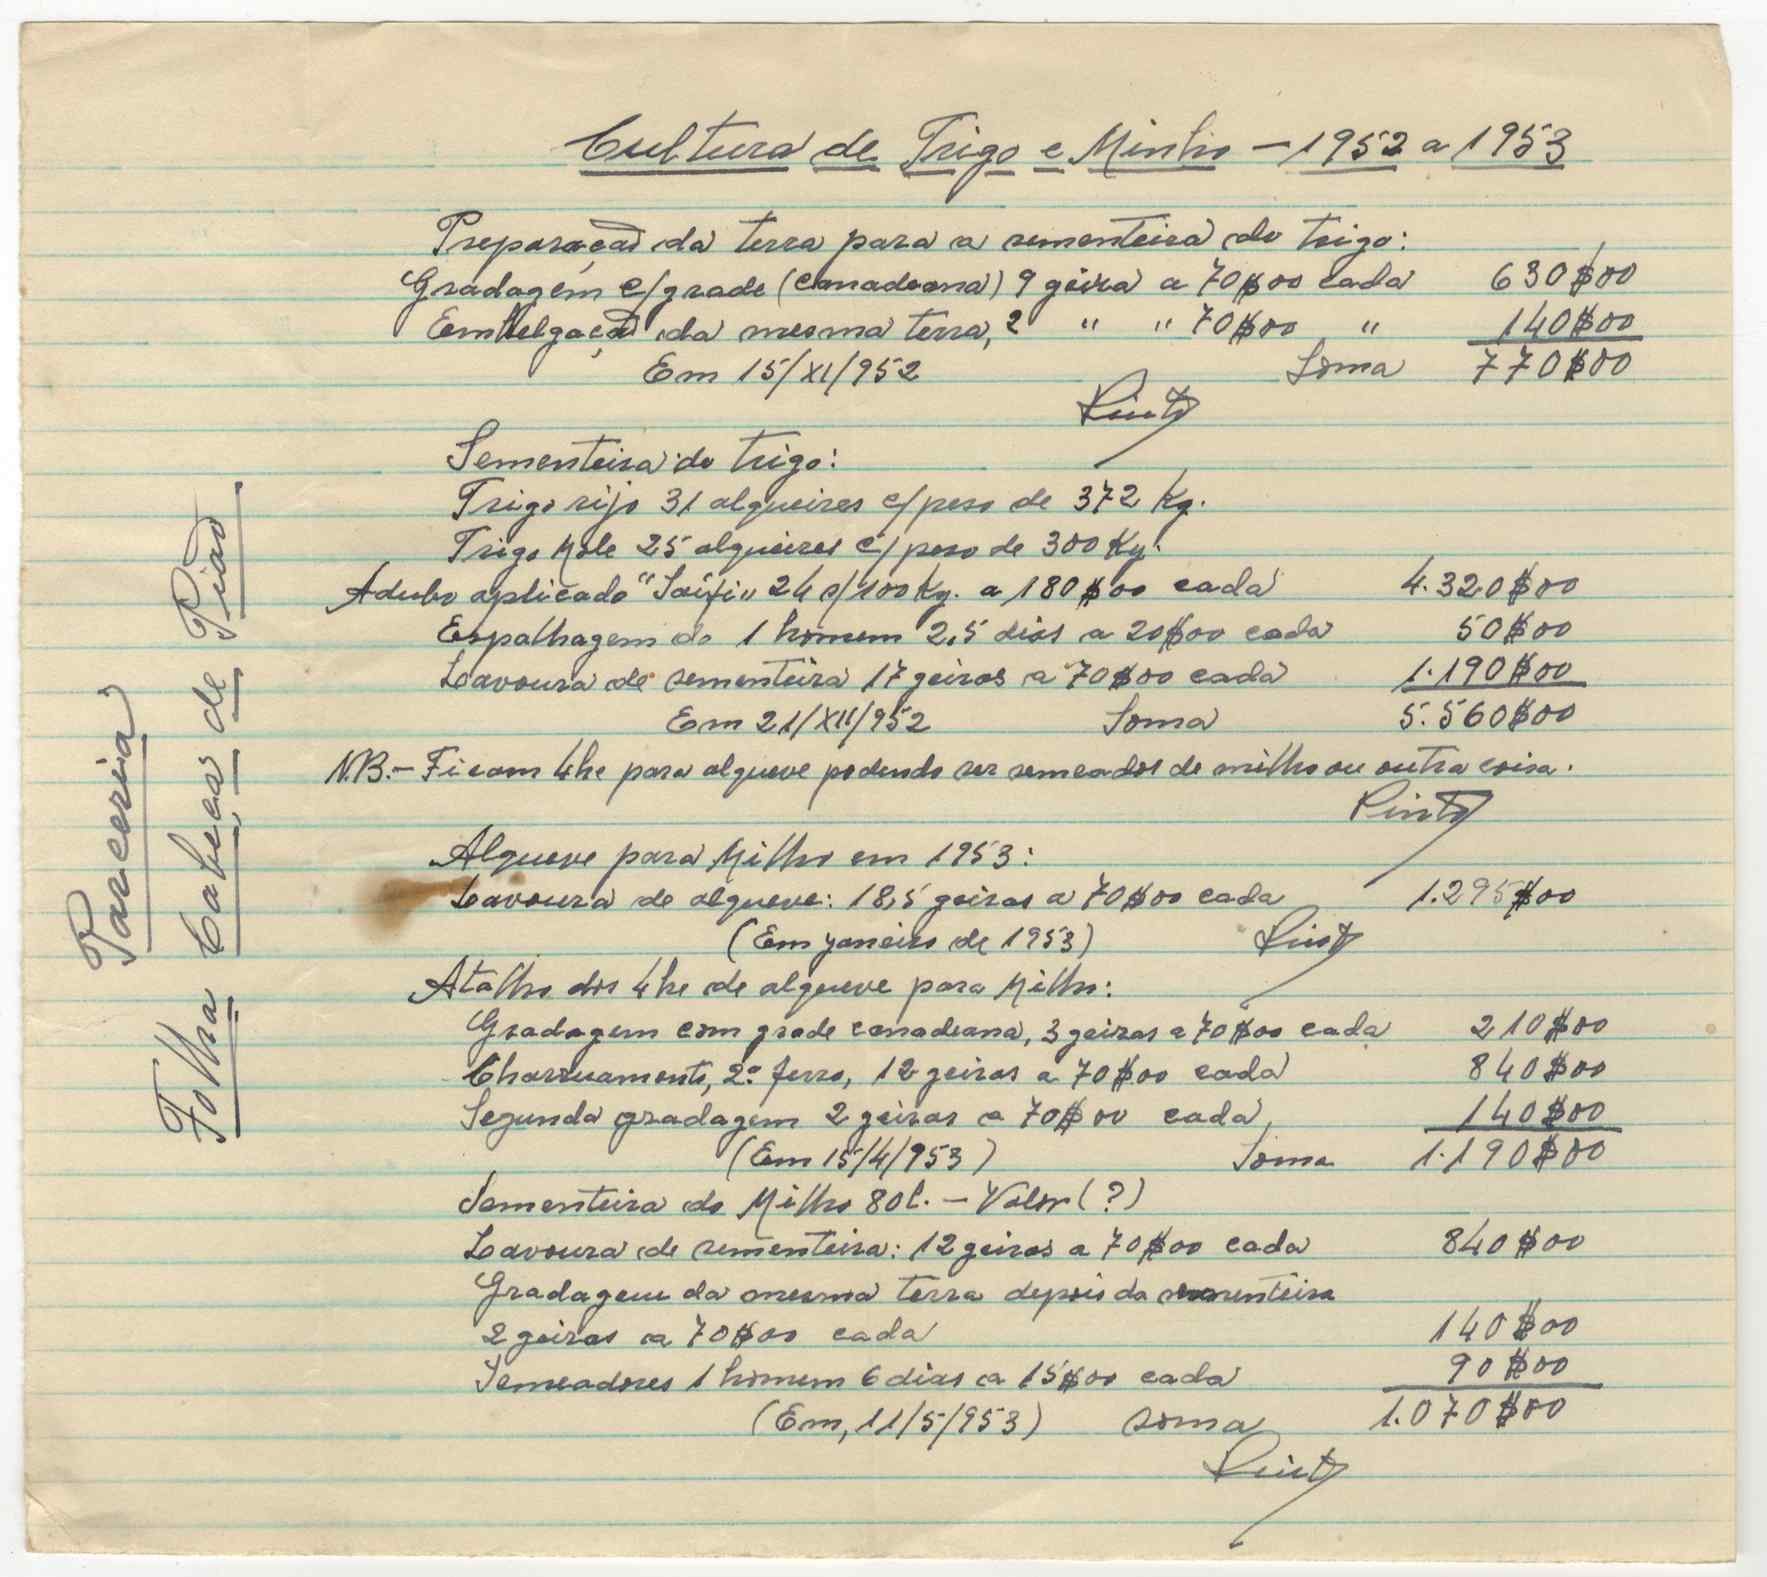 Cultura de Trigo e Minho — 1952 a 1953
Preparação da terra para a sementeira do trigo:
Gradagem c/grade (canadeana) 9 geira a 70$00 cada 630$00
Embelgação da mesma terra, 2 " " 70$00 " 140$00
Em 15/XI/952 Soma 770$00
Pinto
Sementeira do trigo:
Trigo rijo 31 alqueires c/peso de 372 Kg.
Trigo Mole 25 alqueires c/peso de 300 Kg.
Adubo aplicado 24 s/100Kg. a 180$00 cada 4.320$00
Espalhagem do 1 homem 2,5 dias a 20$00 cada 50$00
Lavoura de sementeira 17 geiras a 70$00 cada 1.190$00
Em 21/XII/952 Soma 5.560$00
N.B.— Ficam 4he para alqueve podendo ser semeados de milho ou outra coisa.
Pinto
Alqueve para Milho em 1953:
Lavoura de alqueve: 18,5 geiras a 70$00 cada 1.295$00
(Em janeiro de 1953) Pinto
Atalho dos 4he de alqueve para Milho:
Gradagem com grade canadeana, 3 geiras a 70$00 cada 210$00
Charruamento, 2º ferro, 12 geiras a 70$00 cada 840$00
Segunda gradagem 2 geiras a 70$00 cada, 140$00
(Em 15/4/953) Soma 1.190$00
Sementeira do Milho 80l. — Valor (?)
Lavoura de sementeira: 12 geiras a 70$00 cada 840$00
Gradagem da mesma terra depois da sementeira
2 geiras a 70$00 cada 140$00
Semeadores 1 homem 6 dias a 15$00 cada 90$00
(Em, 11/5/953) soma 1.070$00
Pinto
Parceria
Folha Cabeças de Pião